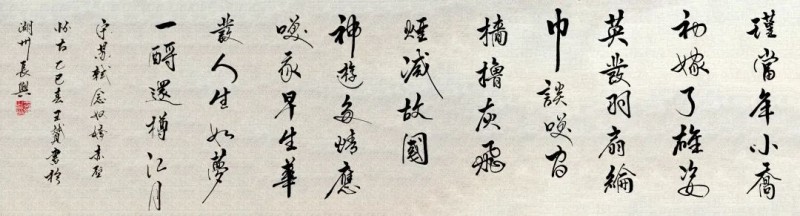 瑾當年小喬
初嫁了雄姿
英發羽扇綸
巾談咲間
檣擼灰飛
煙滅故國
神遊多情應
咲我早生華
發人生如夢
一酹還樽江月
宋蘇軾念奴嬌赤壁
懷古乙巳春王贊書於
湖州長興